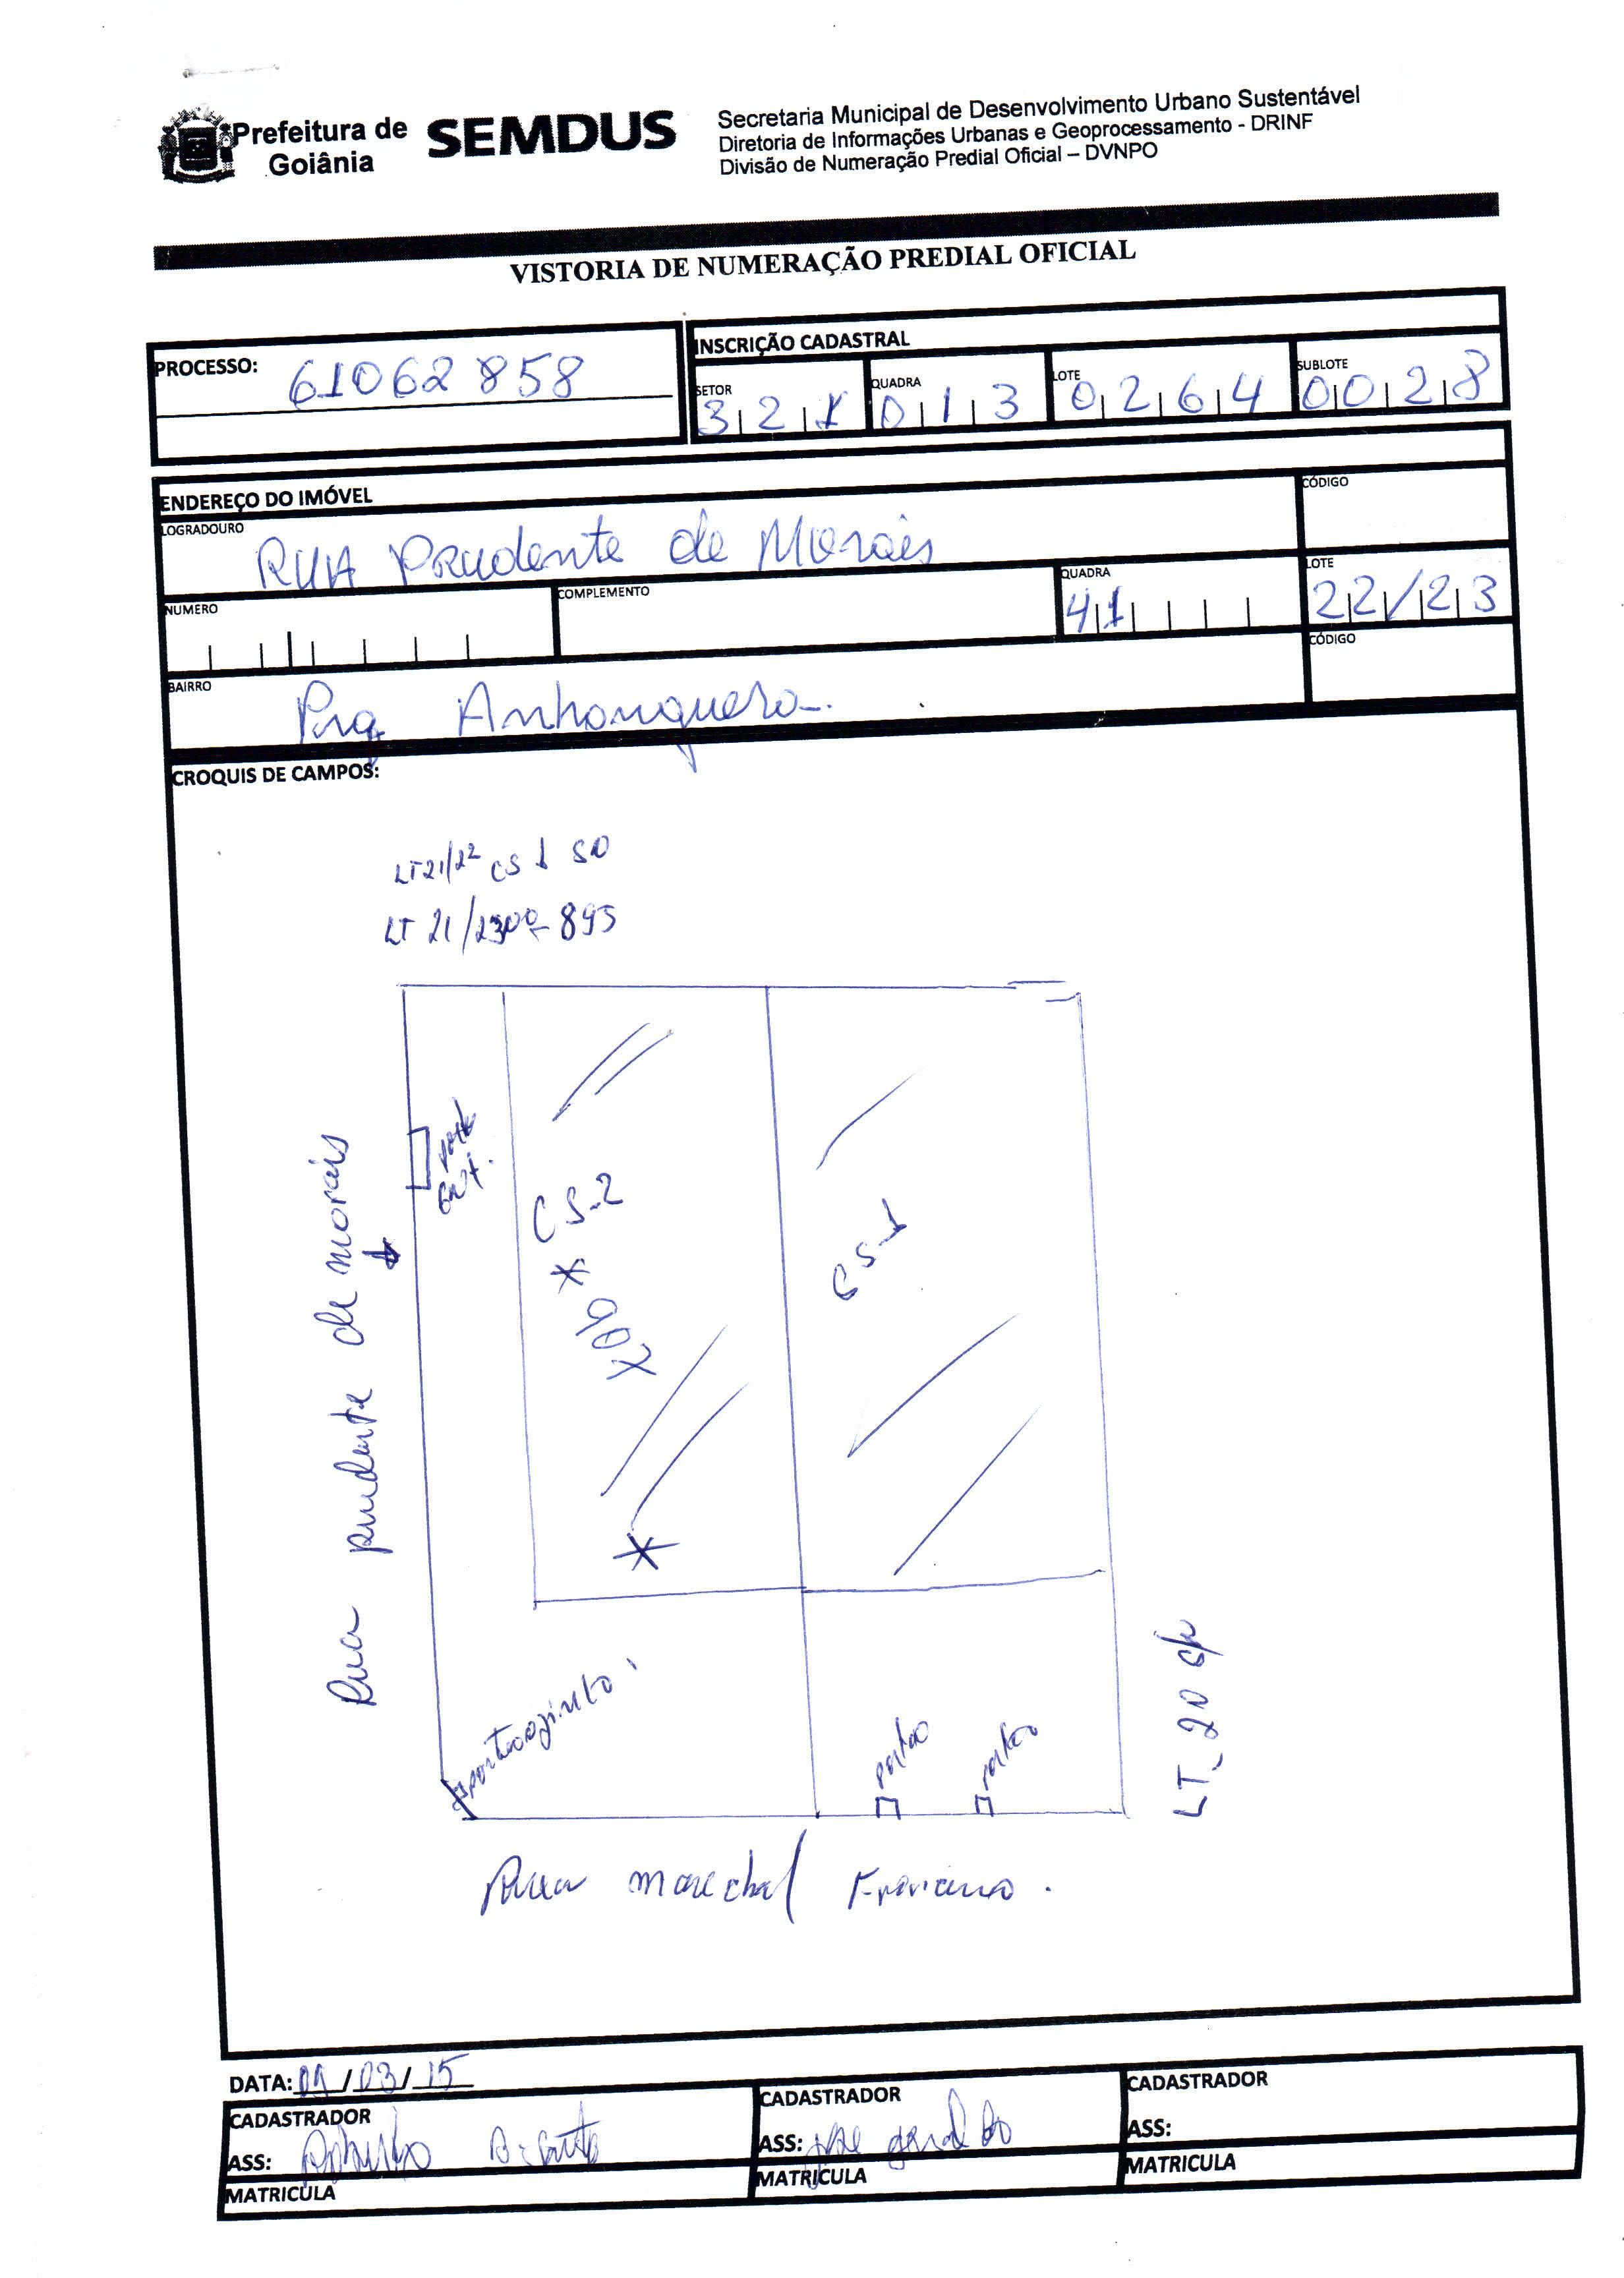 Prefeitura de
Goiânia
SEMDUS
Secretaria Municipal de Desenvolvimento Urbano Sustentável
Diretoria de Informações Urbanas e Geoprocessamento - DRINF
Divisão de Numeração Predial Oficial – DVNPO
VISTORIA DE NUMERAÇÃO PREDIAL OFICIAL
PROCESSO: 61062858
INSCRIÇÃO CADASTRAL
SETOR QUADRA LOTE SUBLOTE
321 013 0264 0028
ENDEREÇO DO IMÓVEL
LOGRADOURO CÓDIGO
RUA Prudente de Morais
NUMERO COMPLEMENTO QUADRA LOTE
41 22/23
BAIRRO CÓDIGO
Prq Anhanguera
CROQUIS DE CAMPOS:
LT 21/22 CS 1 SD
LT 21/23 895
Rua prudente de morais
CS-2
CS-1
LT-20
portão
portão
Rua marechal
DATA: /03/15
CADASTRADOR CADASTRADOR CADASTRADOR
ASS: ASS: ASS:
MATRICULA MATRICULA MATRICULA